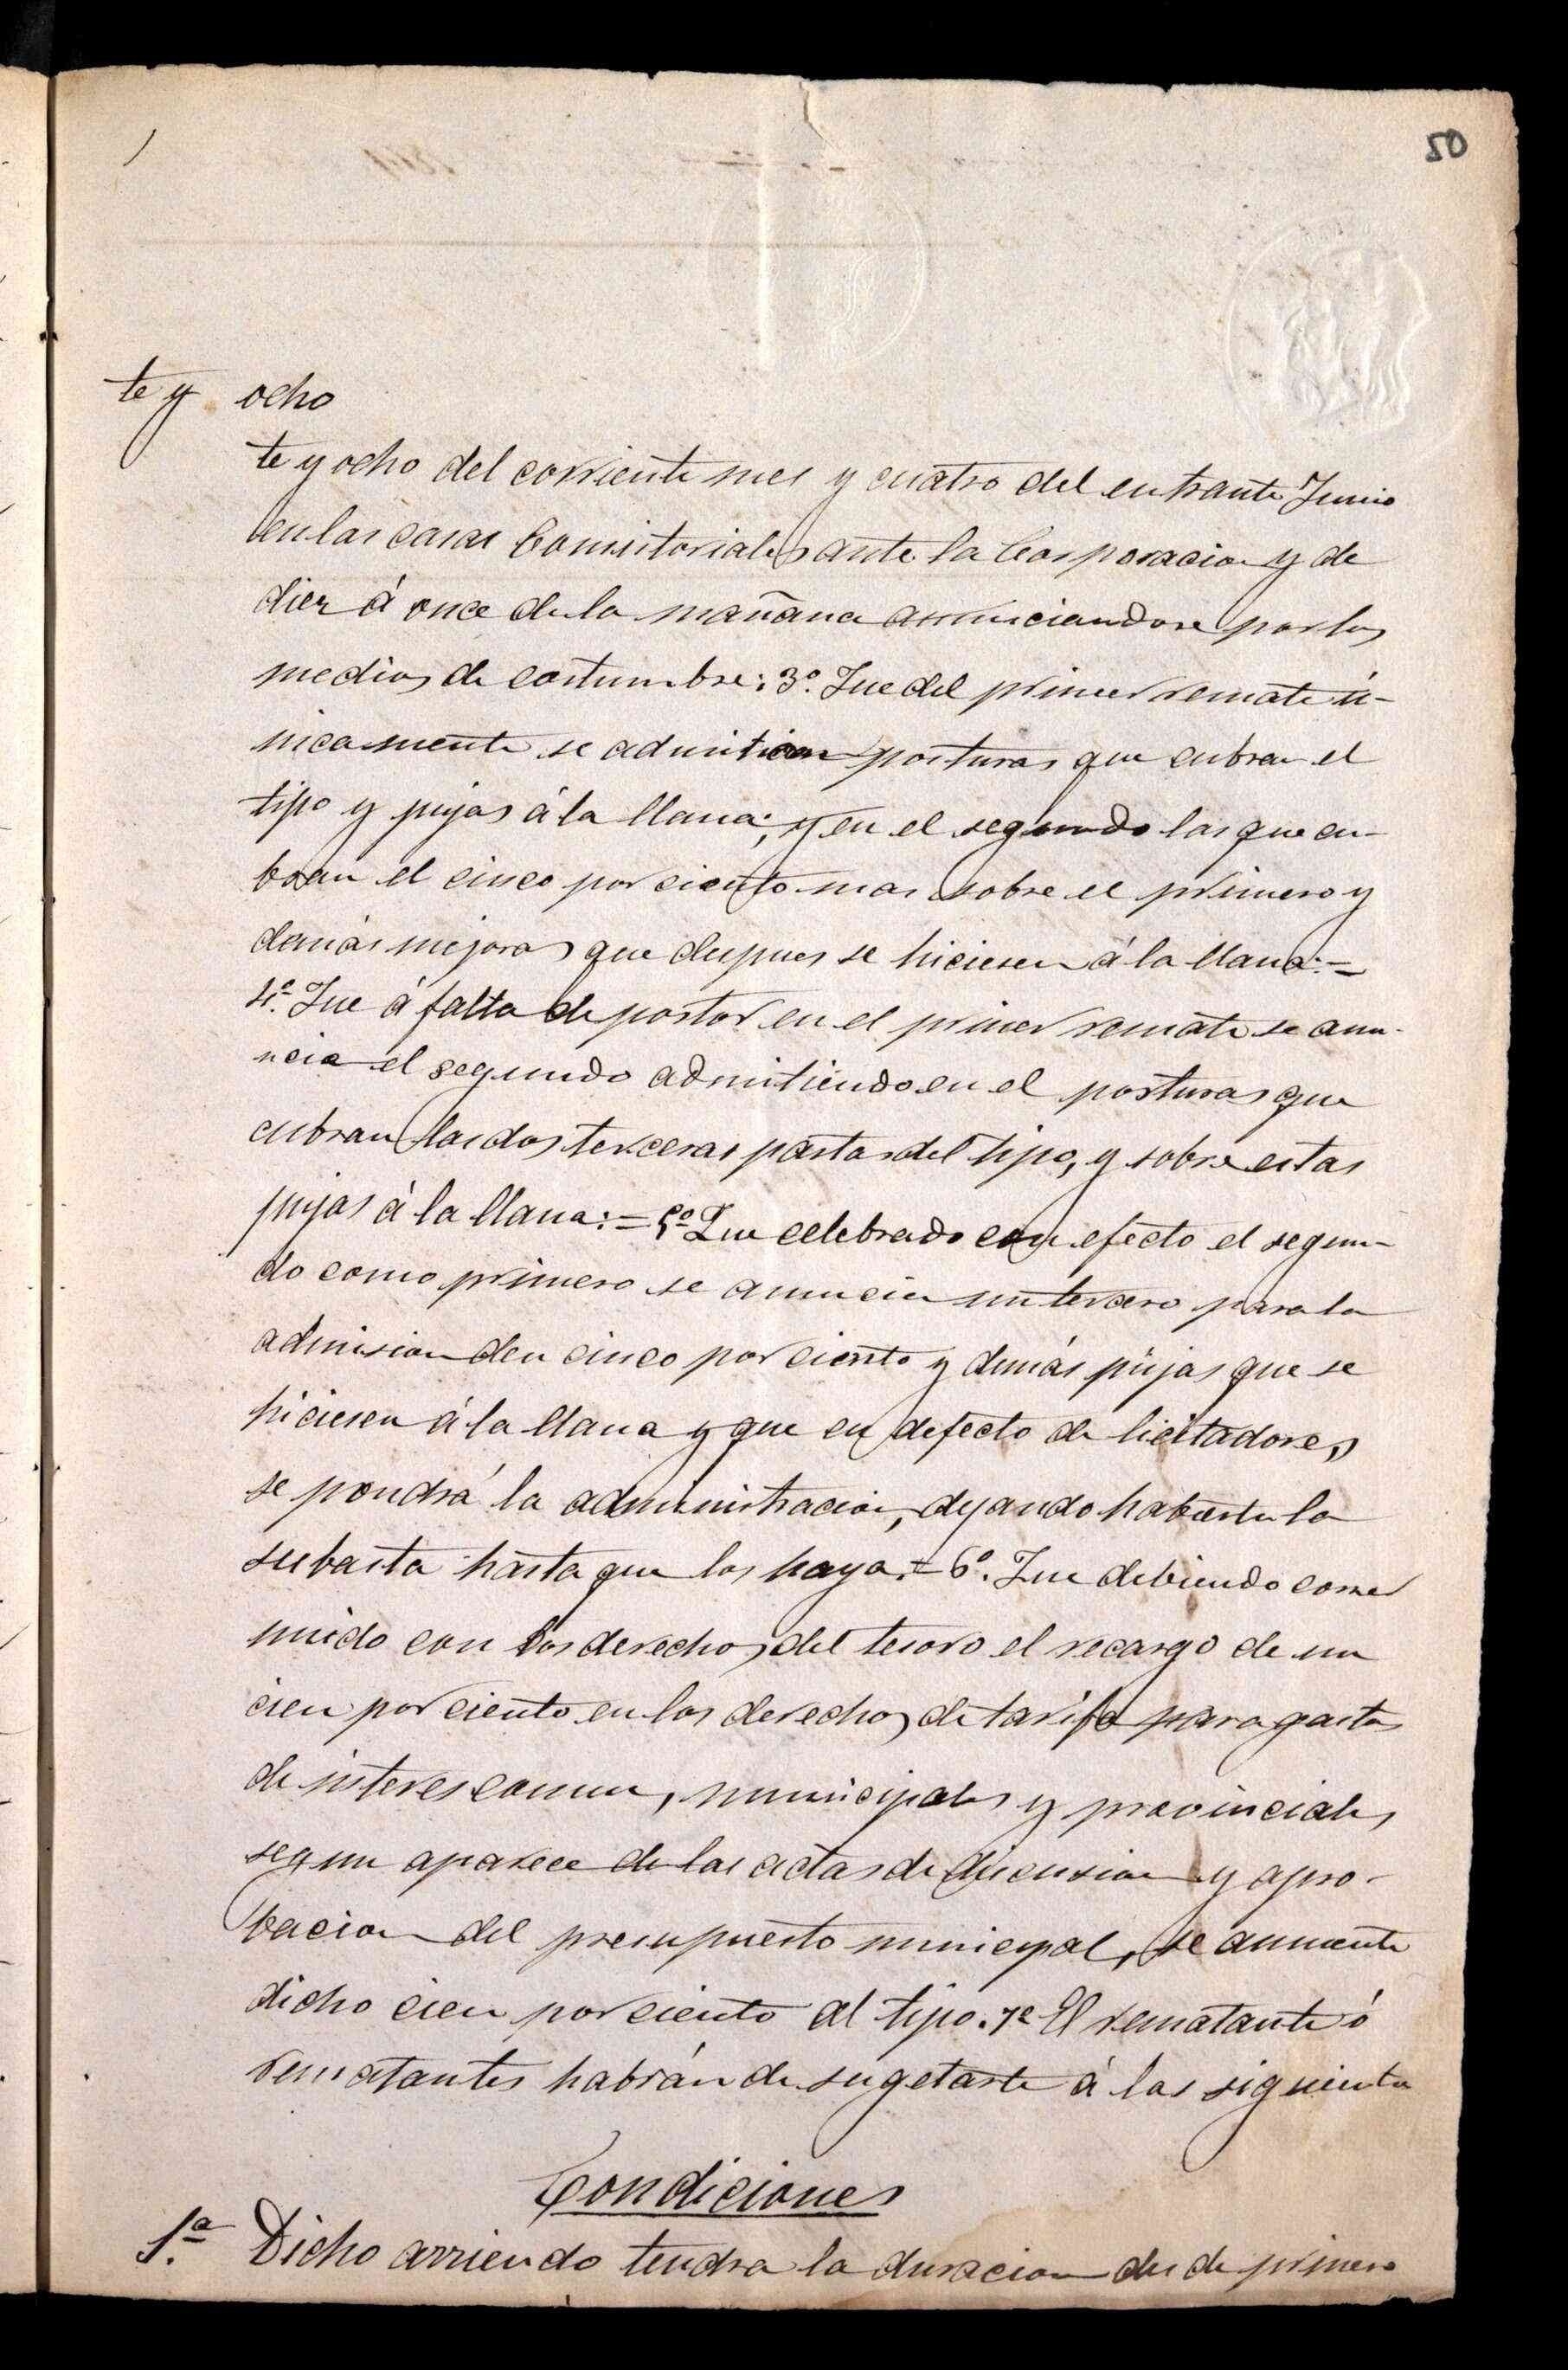 50
te y ocho
te y ocho del corriente mes y cuatro del entrante Junio
en las casas Consistoriales ante la Corporacion y de
diez á once de la mañana anunciandose por los
medios de costumbre: 3º. Que del primer remate ú-
nicamente se admitiran posturas que cubran el
tipo y pujas á la llana; y en el segundo las que cu-
bran el cinco por ciento mas sobre el primero y
demás mejoras que despues se hiciesen á la llana:=
4º. Que á falta de postor en el primer remate se anu-
ncia el segundo admitiendo en el posturas que
cubran las dos terceras partes del tipo, y sobre estas
pujas á la llana:= 5º Que celebrado con efecto el segun-
do como primero se anuncia un tercero para la
admision del cinco por ciento y demás pujas que se
hiciesen á la llana y que en defecto de licitadores,
se pondrá la administracion, dejando habierta la
subasta hasta que los haya.= 6º. Que debiendo correr
unido con los derechos del tesoro el recargo de un
cien por ciento en los derechos de tarifa para gastos
de interes comun, municipales y provinciales
segun aparece de las actas de discusion y apro-
bacion del presupuesto municipal, se aumente
dicho cien por ciento al tipo. 7º El rematante ó
rematantes habrán de sugetarse á las siguientes
Condiciones
1.ª Dicho arriendo tendra la duracion desde primero